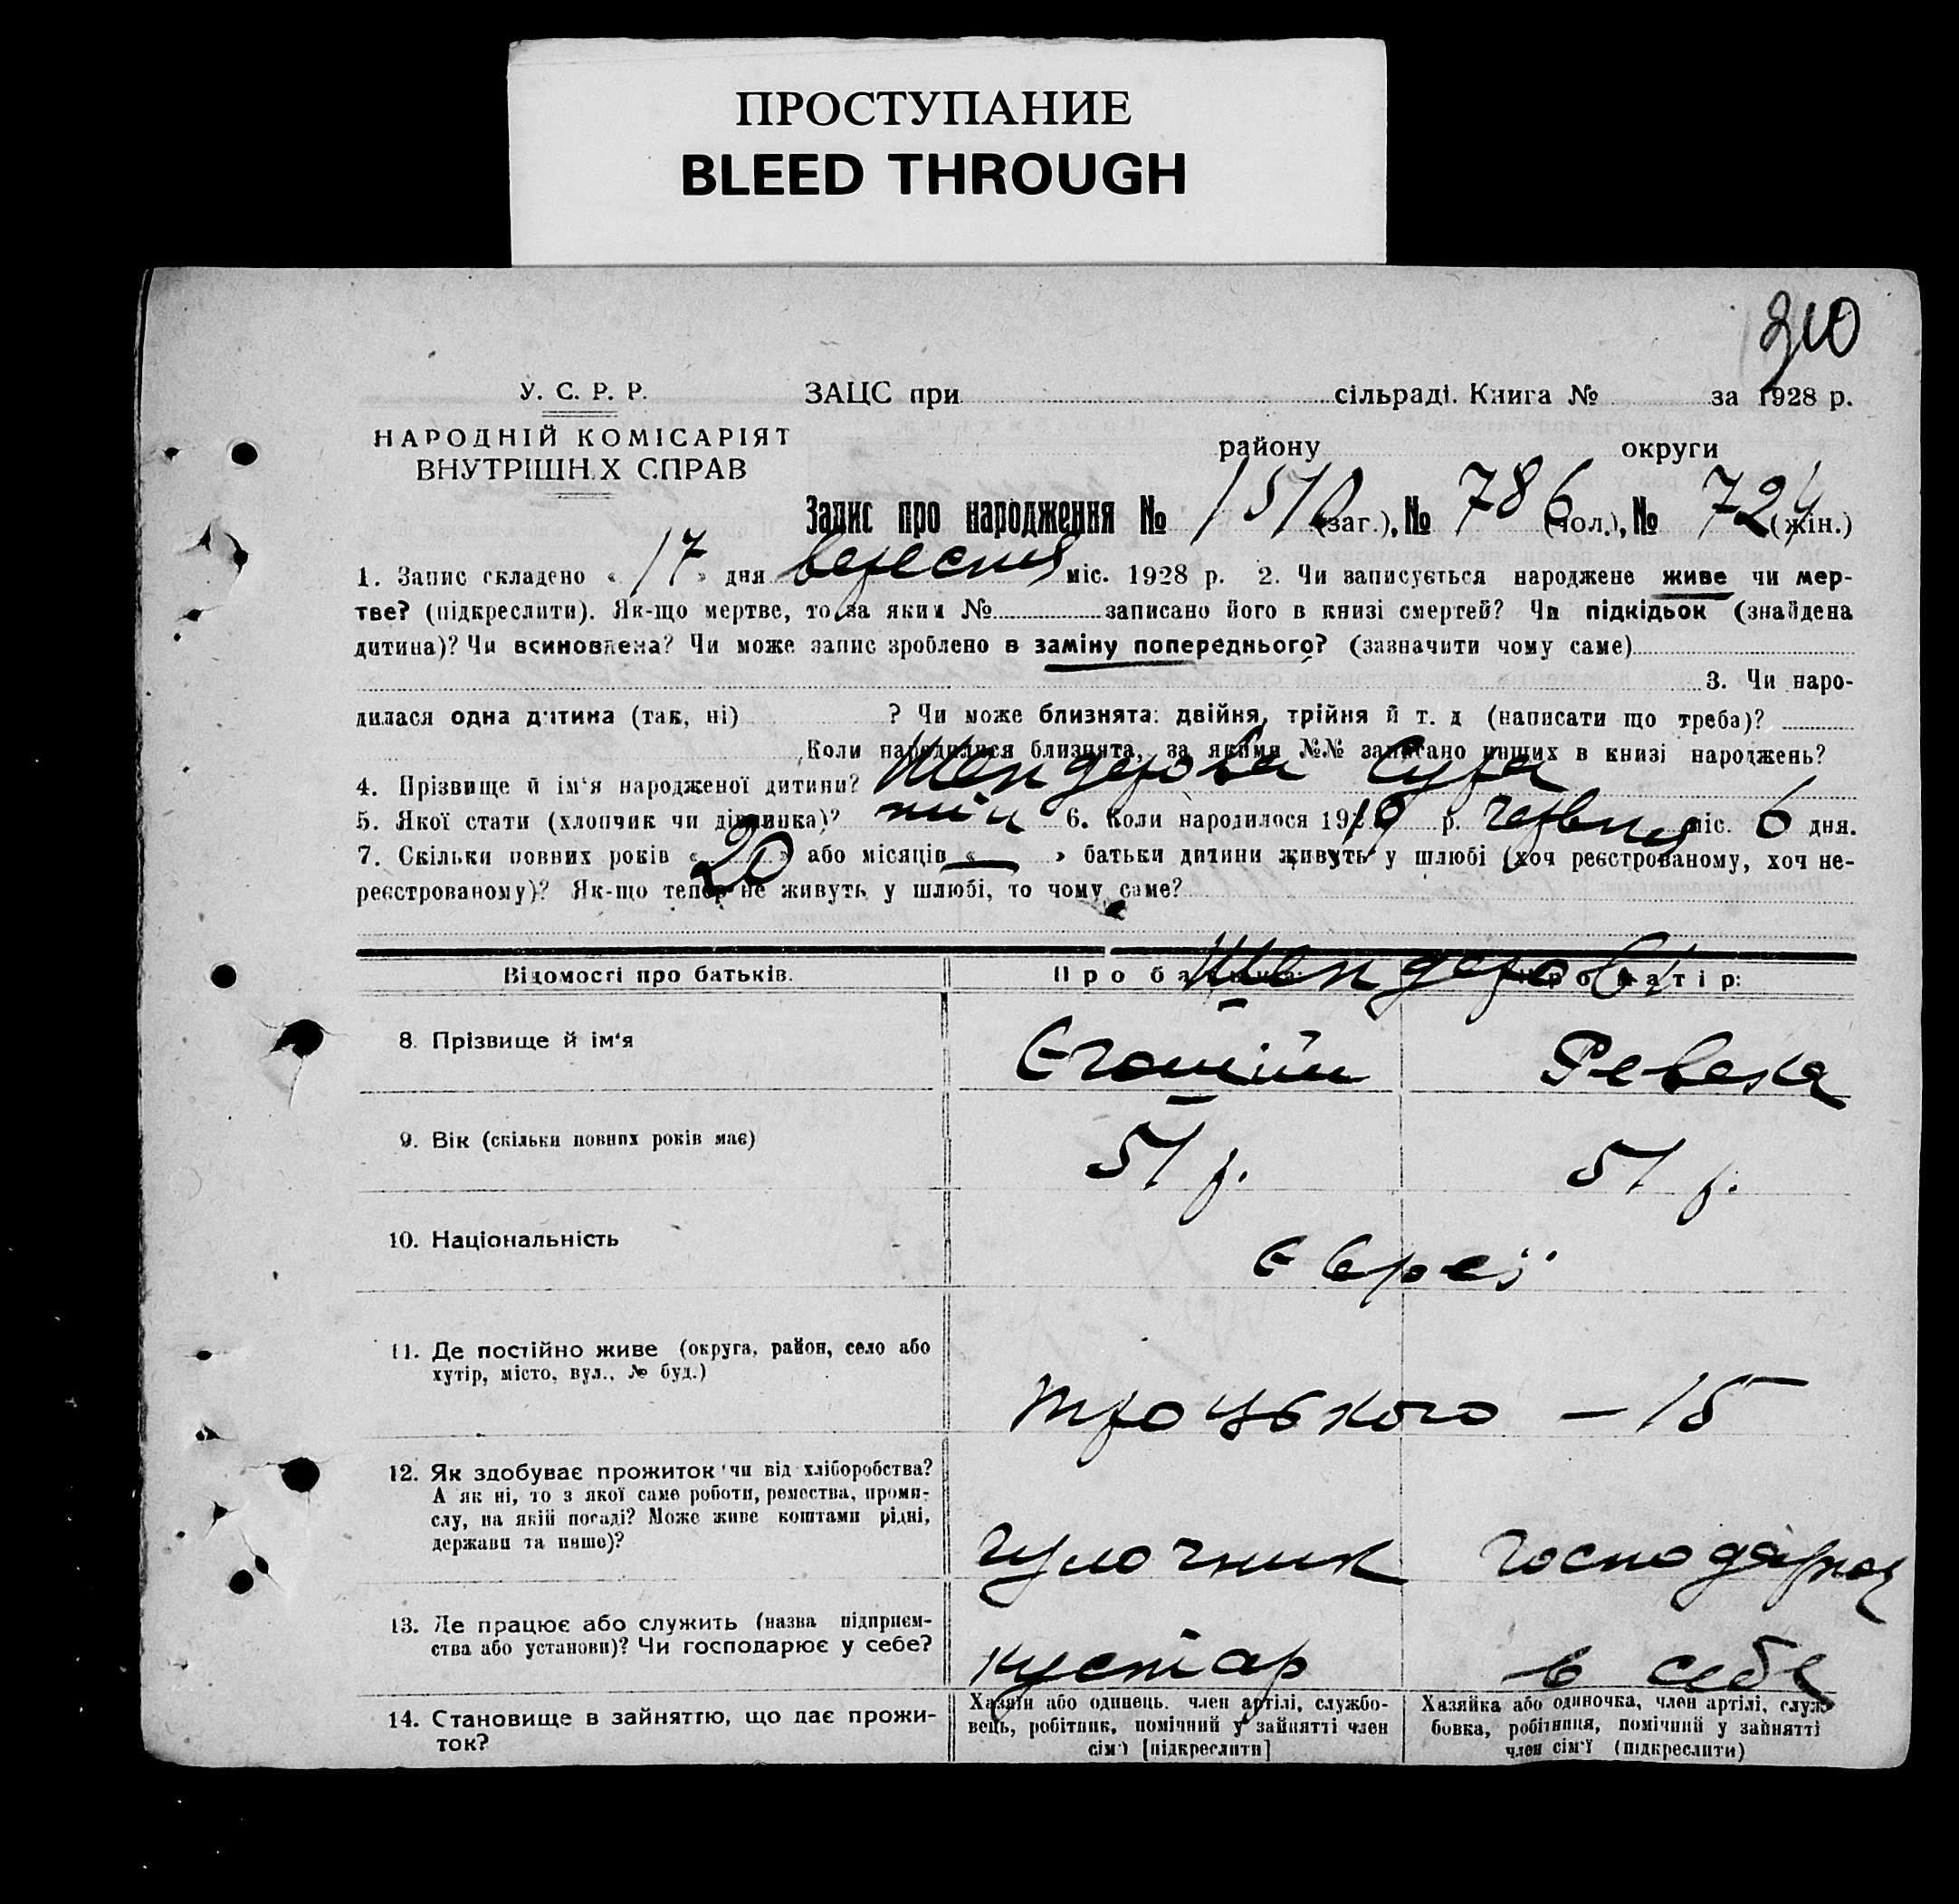 ПРОСТУПАНИЕ
BLEED THROUGH
210
У. С. Р. Р.
НАРОДНІЙ КОМІСАРІЯТ
ВНУТРІШН.Х СПРАВ
ЗАЦС при сільраді. Книга № за 1928 р.
району округи
Запис про народження № 1510 (заг.), № 786 (чол.), № 724 (жін.)
1. Запис складено « 17 » дня вересня міс. 1928 р. 2. Чи записується народжене живе чи мер-
тве? (підкреслити). Як-що мертве, то за яким № записано його в книзі смертей? Чи підкідьок (знайдена
дитина)? Чи всиновлена? Чи може запис зроблено в заміну попереднього? (зазначити чому саме)
3. Чи наро-
дилася одна дитина (так, ні) ? Чи може близнята: двійня, трійня й т. д (написати що треба)?
Коли народилися близнята, за якими №№ записано инших в книзі народжень?
4. Прізвище й ім'я народженої дитини? Шендерова Сура
5. Якої стати (хлопчик чи дівчинка)? 6. Коли народилося 19 р. червня міс. 6 дня.
7. Скільки повних років « 20 » або місяців « — » батьки дитини живуть у шлюбі (хоч реєстрованому, хоч не-
реєстрованому)? Як-що тепер не живуть у шлюбі, то чому саме?
Шендерови
Відомості про батьків. Про батька: Про матір:
8. Прізвище й ім'я Ревека
9. Вік (скільки повних років має) 51 р. 51 р.
10. Національність Євреї
11. Де постійно живе (округа, район, село або
хутір, місто, вул., № буд.)
Троцького — 15
12. Як здобуває прожиток чи від хліборобства?
А як ні, то з якої саме роботи, ремества, проми-
слу, на якій посаді? Може живе коштами рідні,
держави та инше)?
господарка
13. Де працює або служить (назва підприєм-
ства або установи)? Чи господарює у себе?
кустар в себе
14. Становище в зайняттю, що дає прожи-
ток?
Хазяїн або одинець. член артілі, службо-
вець, робітник, помічний у зайнятті член
сім'ї [підкреслити]
Хазяйка або одиночка, член артілі, служ-
бовка, робітниця, помічний у зайнятті
член сім'ї (підкреслити)